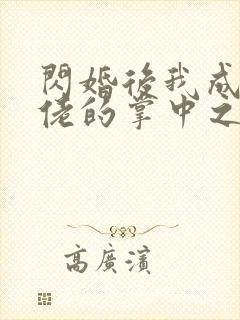 閃婚後我成
佬的掌中之
高廣濱